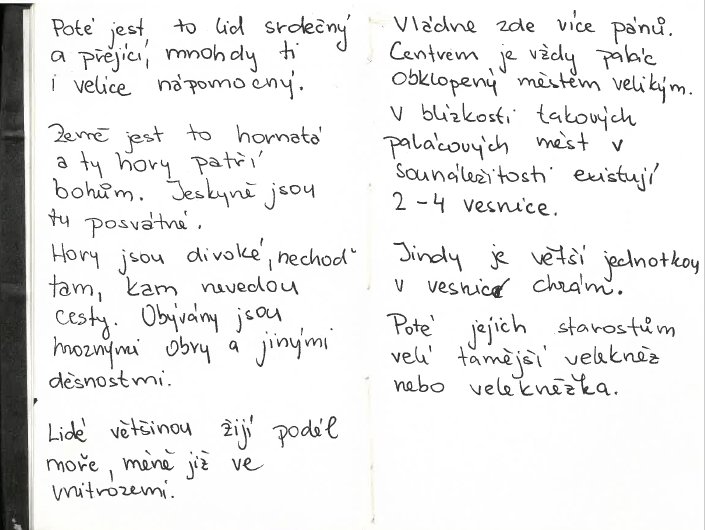 Poté jest to lid srdečný
a přející, mnohdy ti
i velice nápomocný.
Země jest to hornatá
a ty hory patří
bohům. Jeskyně jsou
tu posvátné.
Hory jsou divoké, nechoď
tam, kam nevedou
cesty. Obývány jsou
hroznými obry a jinými
děsnostmi.
Lidé většinou žijí podél
moře, méně již ve
vnitrozemí.
Vládne zde více pánů.
Centrem je vždy palác
obklopený městem velikým.
V blízkosti takových
palácových měst v
sounáležitosti existují
2-4 vesnice.
Jindy je větší jednotkou
v vesnice chrám.
Poté jejich starostům
velí tamější velekněz
nebo velekněžka.